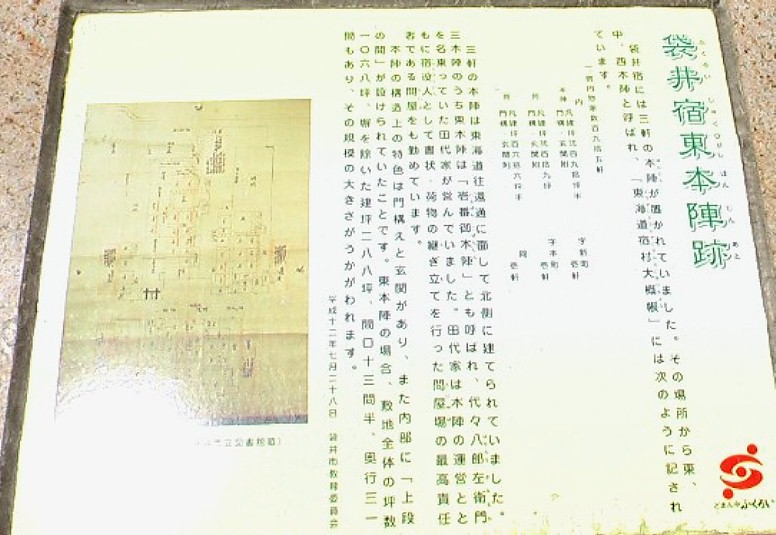 袋井宿東本陣跡
ふくろい しゅくひがし ほん じん あと
袋井宿には三軒の本陣が置かれていました。その場所から東、
中、西本陣と呼ばれ、「東海道宿村大概帳」には次のように記され
ています。
一宿内惣家数百九拾五軒
内
本陣 凡建坪
門構 玄関附
字新町
壱軒
同 凡建坪
門構 玄関附
字本町
壱軒
同 凡建坪
門構 玄関附
同
壱軒
三軒の本陣は東海道往還通に面して北側に建てられていました。
三本陣のうち東本陣は「壱番御本陣」とも呼ばれ、代々八郎左衛門
を名乗っていた田代家が営んでいました。田代家は本陣の運営とと
もに宿役人として書状、荷物の継ぎ立てを行った問屋場の最高責任
者である問屋をも勤めています。
本陣の構造上の特色は門構えと玄関があり、また内部に「上段
の間」が設けられていたことです。東本陣の場合、敷地全体の坪数
一〇六八坪、塀を除いた建坪二八八坪、間口十三間半、奥行三一
間もあり、その規模の大きさがうかがわれます。
平成十二年七月二十八日 袋井市教育委員会
市立図書館蔵）
どまん中ふくろい